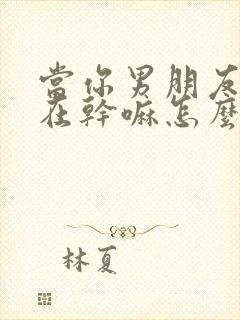 當你男朋友
在幹嘛怎麼
林夏